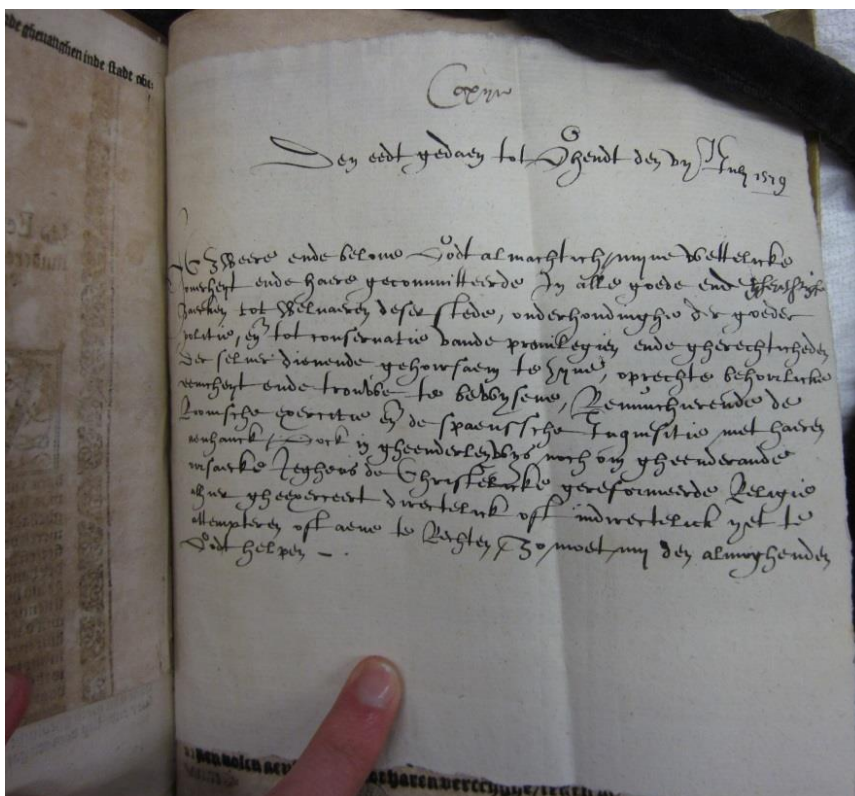 nde ghevanghen inde stadt
Copije
Den eedt gedaen tot Ghendt den vij July 1579
Ick zweere ende belove Godt almachtich, mijne wettelicke
Overheyt ende haere gecommitteerde In alle goede ende
zaecken tot welvaeren deser stede, onderhoudinghe der goeder
politie, en tot conservatie vande previlegien ende gherechticheden
der selver dienende gehoirsaem te zyne, oprechte behoirlicke
eenicheyt ende trouwe te bewysene, Renunchierende de
Romsche exercitie en de spaenssche Inquisitie met haeren
aenhanck, Oock in gheenderley wys noch om gheenderande
oirsaecke Jeghens de Christelycke gereformeerde Religie
alhier gheexerceert directelick oft indirectelick yet te
attempteren oft aene te Rechten, Zo moet my den almoghenden
Godt helpen